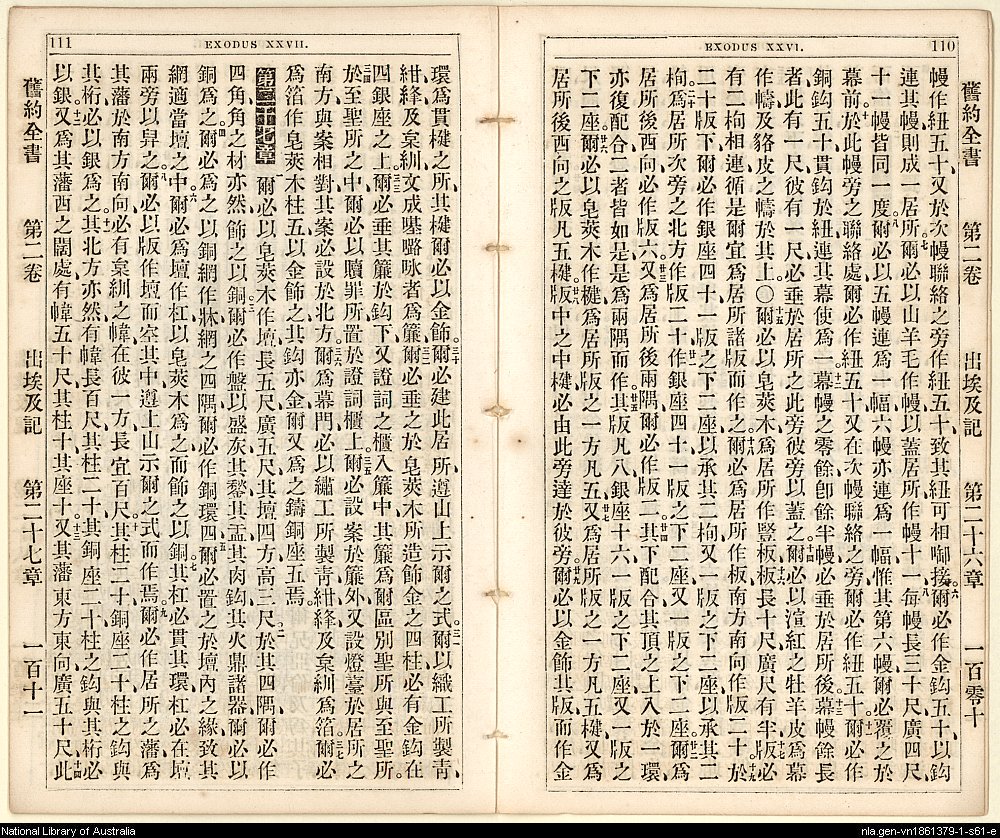 EXODUS XXVI. 110
舊約全書 第二卷 出埃及記 第二十六章 一百零十
幔作紐五十、又於次幔聯絡之旁作紐五十、致其紐可相啣接、六爾必作金鈎五十、以鈎
連其幔、則成一居所、七爾必以山羊毛作幔以蓋居所、作幔十一、八每幔長三十尺、廣四尺、
十一幔皆同一度、九爾必以五幔連爲一幅、六幔亦連爲一幅、惟其第六幔爾必覆之於
幕前、十於此幔旁之聯絡處、爾必作紐五十、又在次幔聯絡之旁、爾必作紐五十、十一爾必作
銅鈎五十、貫鈎於紐、連其幕使爲一、十二幕幔之零餘、卽餘半幔、必垂於居所後、十三幕幔餘長
者、此有一尺、彼有一尺、必垂於居所之此旁彼旁以蓋之、十四爾必以渲紅之牡羊皮爲幕
作幬、及貉皮之幬於其上、〇十五爾必以皂莢木爲居所作豎板、十六板長十尺、廣尺有半、十七版必
有二枸相連、循是爾宜爲居所諸版而作之、十八爾必爲居所作板、南方南向作版二十、十九於
二十版下、爾必作銀座四十、一版之下二座、以承其二枸、又一版之下二座、以承其二
枸、二十爲居所次旁之北方作版二十、廿一作銀座四十、一版之下二座、又一版之下二座、廿二爾爲
居所後西向必作版六、廿三又爲居所後兩隅爾必作版二、廿四其下配合、其頂之上入於一環、
亦復配合、二者皆如是、是爲兩隅而作、廿五其版凡八、銀座十六、一版之下二座、又一版之
下二座、廿六爾必以皂莢木作楗、爲居所版之一方凡五、廿七又爲居所版之一方凡五楗、又爲
居所後西向之版凡五楗、廿八版中之中楗、必由此旁達於彼旁、廿九爾必以金飾其版、而作金
111 EXODUS XXVII.
環爲貫楗之所、其楗爾必以金飾、三十爾必建此居所、遵山上示爾之式、三一爾以織工所製靑、
紺、絳、及枲紃、文成𡏖𡀔咏者爲簾、三二爾必垂之於皂莢木所造飾金之四柱、必有金鈎、在
四銀座之上、三三爾必垂其簾於鈎下、又證詞之櫃入簾中、其簾爲爾區別聖所與至聖所、
三四於至聖所之中、爾必以贖罪所置於證詞櫃上、三五爾必設案於簾外、又設燈臺於居所之
南方、與案相對、其案必設於北方、三六爾爲幕門、必以繡工所製靑、紺、絳、及枲紃爲箔、三七爾必
爲箔作皂莢木柱五、以金飾之、其鈎亦金、爾又爲之鑄銅座五焉、
第二十七章 一爾必以皂莢木作壇、長五尺、廣五尺、其壇四方、高三尺、二於其四隅、爾必作
四角、角之材亦然、飾之以銅、三爾必作盤以盛灰、其鍫、其盂、其肉鈎、其火鼎、諸器爾必以
銅爲之、四爾必爲之以銅網作牀、網之四隅爾必作銅環四、五爾必置之於壇內之緣、致其
網適當壇之中、六爾必爲壇作杠、以皂莢木爲之、而飾之以銅、七其杠必貫其環、杠必在壇
兩旁以舁之、八爾必以版作壇、而空其中、遵上山示爾之式而作焉、九爾必作居所之藩、爲
其藩於南方南向、必有枲紃之幃、在彼一方、長宜百尺、十其柱二十、銅座二十、柱之鈎與
其桁、必以銀爲之、十一其北方亦然、有幃長百尺、其柱二十、其銅座二十、柱之鈎與其桁必
以銀、十二又爲其藩西之闊處、有幃五十尺、其柱十、其座十、十三又其藩東方東向廣五十尺、十四此
舊約全書 第二卷 出埃及記 第二十七章 一百十一
National Library of Australia
nla.gen-vn1861379-1-s61-e